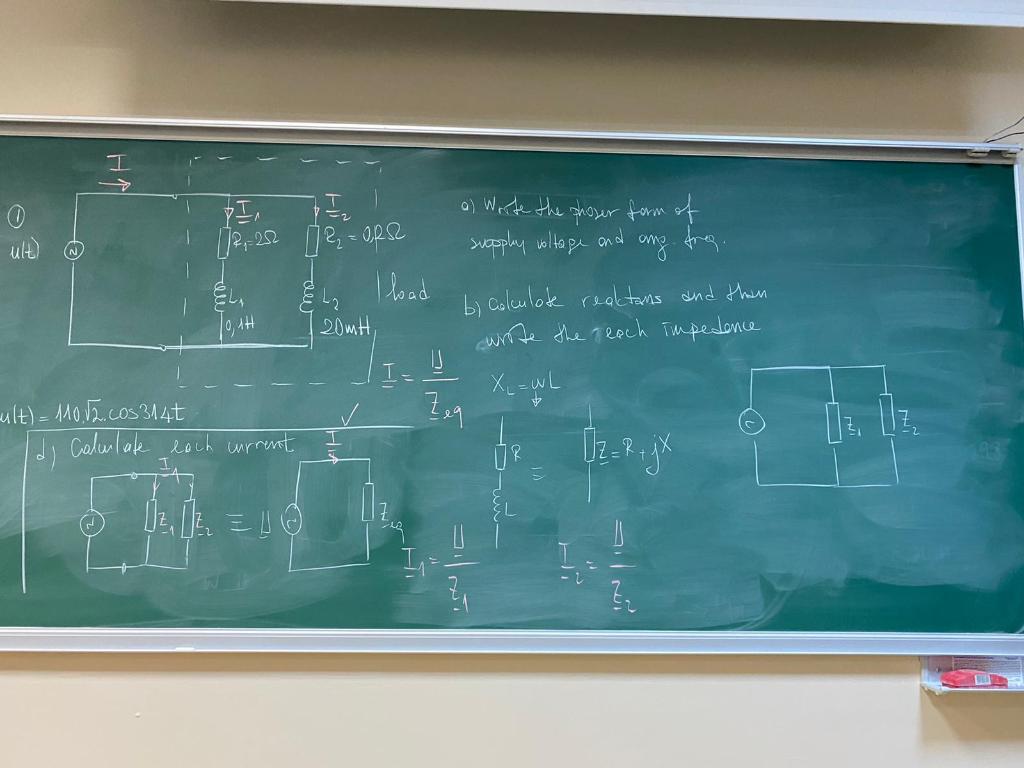 I
1
u(t)
I1
I2
R1=2Ω
R2=0,2Ω
L1
0,1H
L2
20mH
load
u(t)=110.√2.cos314t
I=U/Zeq
a) Write the phoser form of
supply voltage and ang. freq.
b) Calculate reaktans and then
write the each impedence
XL=wL
R
L
≡
Z=R+jX
Z1
Z2
d) Calculate each current
I1
Z1
Z2
≡
U
I
Zeq
I1=U/Z1
I2=U/Z2